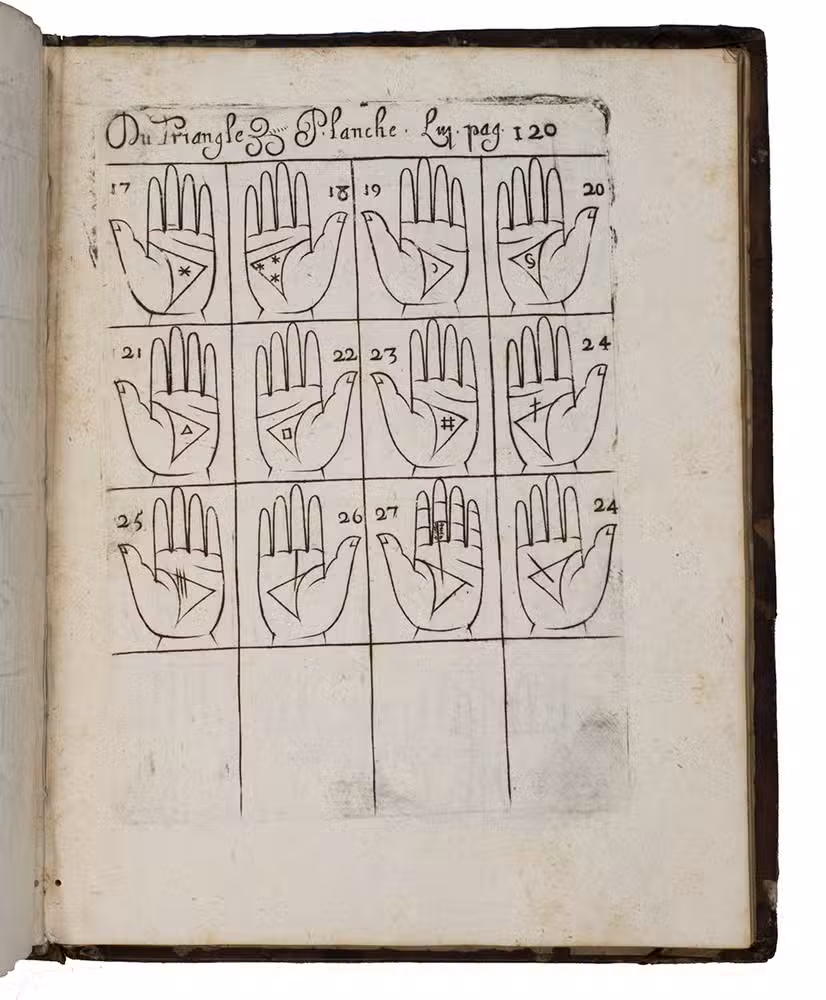 Du Triangle Planche. Liij. pag. 120
17 18 19 20
21 22 23 24
25 26 27 24